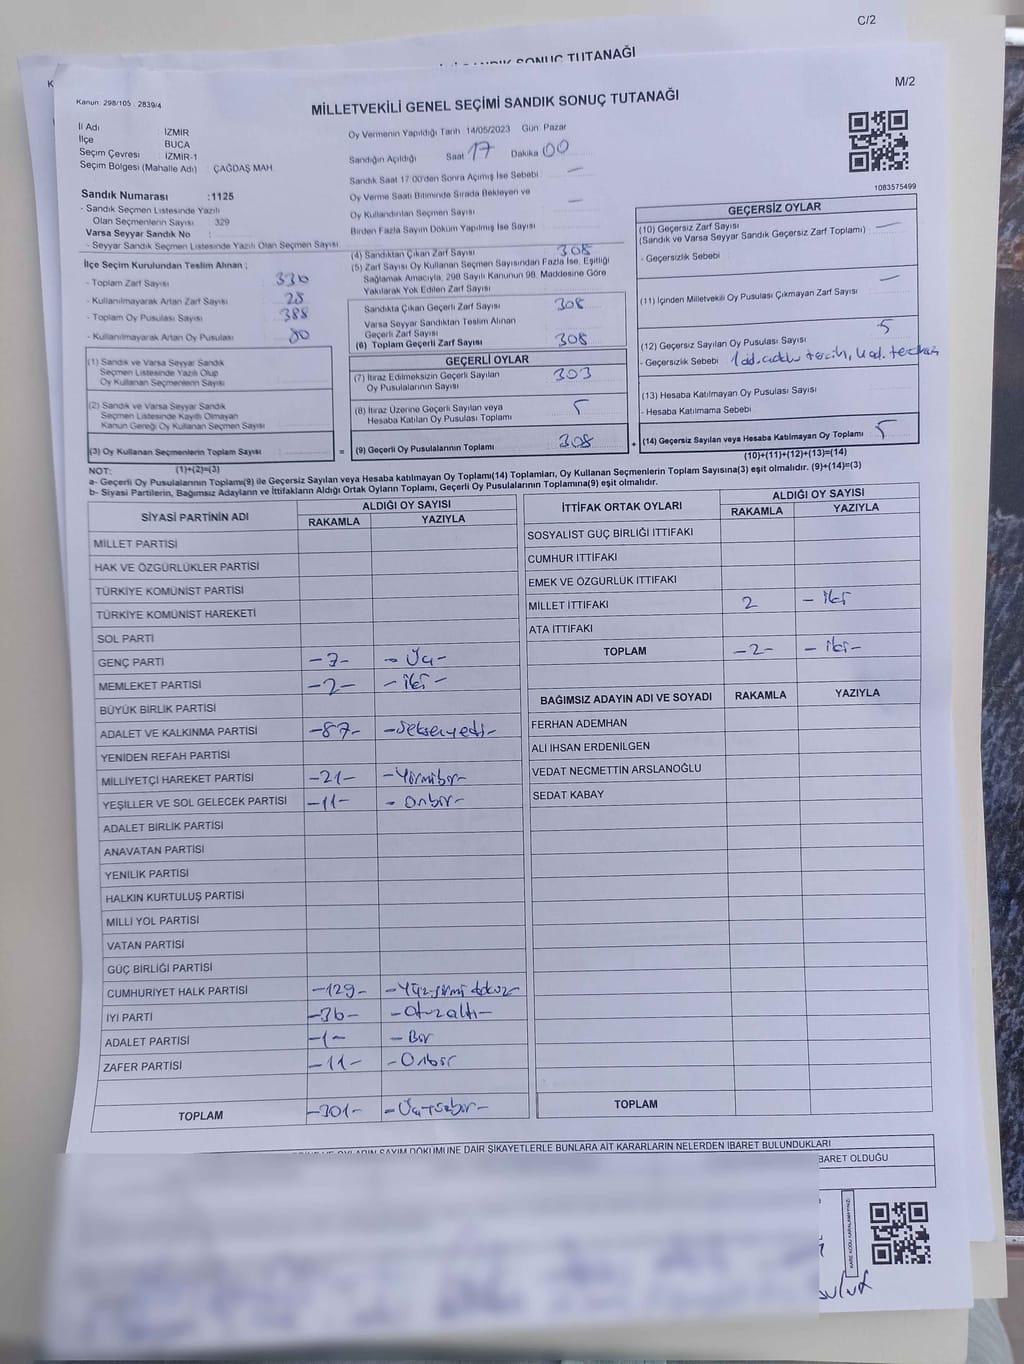 C/2
SONUC TUTANAĞI
M/2
Kanun: 298/105 2839/4
MİLLETVEKİLİ GENEL SEÇİMİ SANDIK SONUÇ TUTANAĞI
İl Adı İZMİR
İlçe BUCA
Seçim Çevresi İZMİR-1
Seçim Bölgesi (Mahalle Adı) : ÇAĞDAŞ MAH
Oy Vermenin Yapıldığı Tarih 14/05/2023 Gün: Pazar
Sandığın Açıldığı Saat 17 Dakika 00
Sandık Saat 17:00'den Sonra Açılmış İse Sebebi : —
Oy Verme Saati Bitiminde Sırada Bekleyen ve
Oy Kullandırılan Seçmen Sayısı —
Birden Fazla Sayım Döküm Yapılmış İse Sayısı
1083575499
Sandık Numarası :1125
- Sandık Seçmen Listesinde Yazılı
Olan Seçmenlerin Sayısı 329
Varsa Seyyar Sandık No :
- Seyyar Sandık Seçmen Listesinde Yazılı Olan Seçmen Sayısı
İlçe Seçim Kurulundan Teslim Alınan ;
- Toplam Zarf Sayısı 330
- Kullanılmayarak Artan Zarf Sayısı 28
- Toplam Oy Pusulası Sayısı 388
- Kullanılmayarak Artan Oy Pusulası 80
(1) Sandık ve Varsa Seyyar Sandık
Seçmen Listesinde Yazılı Olup
Oy Kullanan Seçmenlerin Sayısı
(2) Sandık ve Varsa Seyyar Sandık
Seçmen Listesinde Kayıtlı Olmayan
Kanun Gereği Oy Kullanan Seçmen Sayısı
(3) Oy Kullanan Seçmenlerin Toplam Sayısı
(1)+(2)=(3)
(4) Sandıktan Çıkan Zarf Sayısı 308
(5) Zarf Sayısı Oy Kullanan Seçmen Sayısından Fazla İse, Eşitliği
Sağlamak Amacıyla, 298 Sayılı Kanunun 98. Maddesine Göre
Yakılarak Yok Edilen Zarf Sayısı
Sandıkta Çıkan Geçerli Zarf Sayısı 308
Varsa Seyyar Sandıktan Teslim Alınan
Geçerli Zarf Sayısı
(6) Toplam Geçerli Zarf Sayısı 308
GEÇERLİ OYLAR
(7) İtiraz Edilmeksizin Geçerli Sayılan
Oy Pusulalarının Sayısı 303
(8) İtiraz Üzerine Geçerli Sayılan veya
Hesaba Katılan Oy Pusulası Toplamı 5
= (9) Geçerli Oy Pusulalarının Toplamı 308 +
GEÇERSİZ OYLAR
(10) Geçersiz Zarf Sayısı —
(Sandık ve Varsa Seyyar Sandık Geçersiz Zarf Toplamı)
- Geçersizlik Sebebi
(11) İçinden Milletvekili Oy Pusulası Çıkmayan Zarf Sayısı —
(12) Geçersiz Sayılan Oy Pusulası Sayısı 5
- Geçersizlik Sebebi
(13) Hesaba Katılmayan Oy Pusulası Sayısı
- Hesaba Katılmama Sebebi
(14) Geçersiz Sayılan veya Hesaba Katılmayan Oy Toplamı 5
(10)+(11)+(12)+(13)=(14)
NOT:
a- Geçerli Oy Pusulalarının Toplamı(9) ile Geçersiz Sayılan veya Hesaba katılmayan Oy Toplamı(14) Toplamları, Oy Kullanan Seçmenlerin Toplam Sayısına(3) eşit olmalıdır. (9)+(14)=(3)
b- Siyasi Partilerin, Bağımsız Adayların ve İttifakların Aldığı Ortak Oyların Toplamı, Geçerli Oy Pusulalarının Toplamına(9) eşit olmalıdır.
SİYASİ PARTİNİN ADI ALDIĞI OY SAYISI
RAKAMLA YAZIYLA
MİLLET PARTİSİ
HAK VE ÖZGÜRLÜKLER PARTİSİ
TÜRKİYE KOMÜNİST PARTİSİ
TÜRKİYE KOMÜNİST HAREKETİ
SOL PARTİ
GENÇ PARTİ -3- - Üç-
MEMLEKET PARTİSİ -2- - iki -
BÜYÜK BİRLİK PARTİSİ
ADALET VE KALKINMA PARTİSİ -87- -Seksenyedi-
YENİDEN REFAH PARTİSİ
MİLLİYETÇİ HAREKET PARTİSİ -21- -Yirmibir-
YEŞİLLER VE SOL GELECEK PARTİSİ -11- - Onbir-
ADALET BİRLİK PARTİSİ
ANAVATAN PARTİSİ
YENİLİK PARTİSİ
HALKIN KURTULUŞ PARTİSİ
MİLLİ YOL PARTİSİ
VATAN PARTİSİ
GÜÇ BİRLİĞİ PARTİSİ
CUMHURİYET HALK PARTİSİ -129- -Yüzyirmi dokuz-
İYİ PARTİ -36- -Otuzaltı-
ADALET PARTİSİ -1- - Bir
ZAFER PARTİSİ -11- - Onbir
TOPLAM -301- -Üçyüzbir-
İTTİFAK ORTAK OYLARI ALDIĞI OY SAYISI
RAKAMLA YAZIYLA
SOSYALİST GÜÇ BİRLİĞİ İTTİFAKI
CUMHUR İTTİFAKI
EMEK VE ÖZGÜRLÜK İTTİFAKI
MİLLET İTTİFAKI 2 - iki
ATA İTTİFAKI
TOPLAM -2- - iki-
BAĞIMSIZ ADAYIN ADI VE SOYADI RAKAMLA YAZIYLA
FERHAN ADEMHAN
ALİ İHSAN ERDENİLGEN
VEDAT NECMETTİN ARSLANOĞLU
SEDAT KABAY
TOPLAM
SAYIM DÖKÜMÜNE DAİR ŞİKAYETLERLE BUNLARA AİT KARARLARIN NELERDEN İBARET BULUNDUKLARI
BARET OLDUĞU
KARE KODU KARALAMAYINIZ